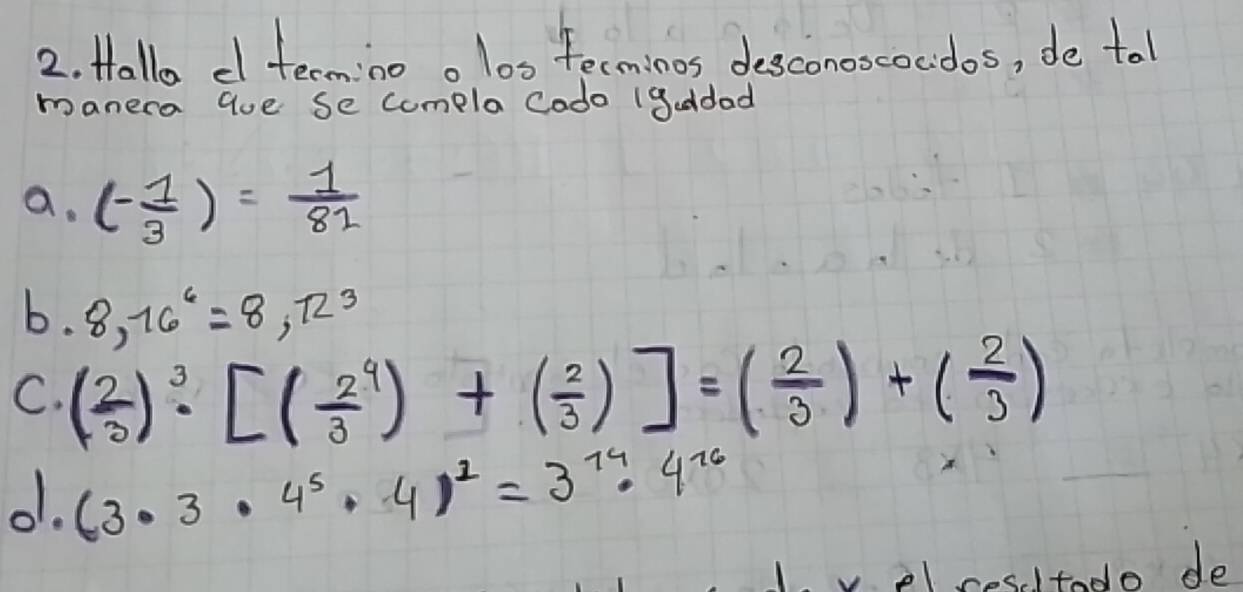 2. Halla el termino o los terminos desconoscocidos, de tal
manera que se cumpla cada igualdad
a. (-1/3) = 1/81
b. 8,16⁶ = 8,12³
c. (2/3)³ · [(2⁴/3) + (2/3)] = (2/3) + (2/3)
d. (3 · 3 · 4⁵ · 4)² = 3¹⁴ · 4¹⁶
y el resultado de